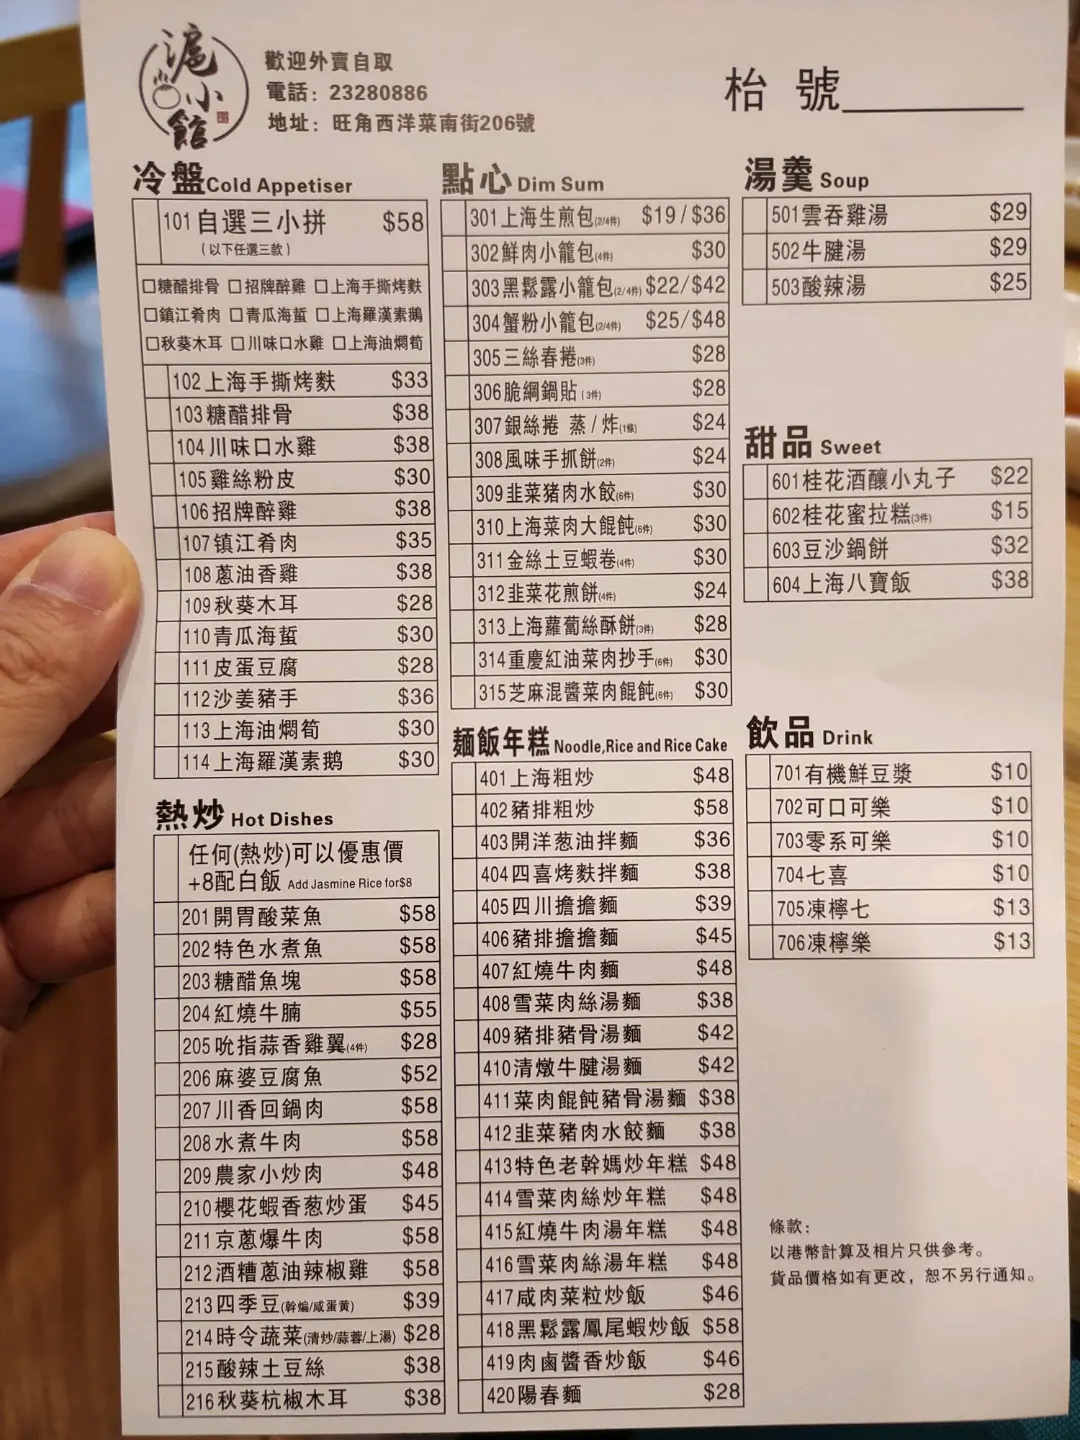 滬小館
歡迎外賣自取
電話：23280886
地址：旺角西洋菜南街206號
枱 號
冷盤Cold Appetiser
101自選三小拼 $58
(以下任選三款)
□糖醋排骨 □招牌醉雞 □上海手撕烤麩
□鎮江肴肉 □青瓜海蜇 □上海羅漢素鵝
□秋葵木耳 □川味口水雞 □上海油燜筍
102上海手撕烤麩 $33
103糖醋排骨 $38
104川味口水雞 $38
105雞絲粉皮 $30
106招牌醉雞 $38
107镇江肴肉 $35
108蔥油香雞 $38
109秋葵木耳 $28
110青瓜海蜇 $30
111皮蛋豆腐 $28
112沙姜豬手 $36
113上海油燜筍 $30
114上海羅漢素鹅 $30
熱炒 Hot Dishes
任何(熱炒)可以優惠價
+8配白飯 Add Jasmine Rice for$8
201開胃酸菜魚 $58
202特色水煮魚 $58
203糖醋魚塊 $58
204紅燒牛腩 $55
205吮指蒜香雞翼(4件) $28
206麻婆豆腐魚 $52
207川香回鍋肉 $58
208水煮牛肉 $58
209農家小炒肉 $48
210櫻花蝦香葱炒蛋 $45
211京蔥爆牛肉 $58
212酒糟蔥油辣椒雞 $58
213四季豆(幹煸/咸蛋黄) $39
214時令蔬菜(清炒/蒜蓉/上湯) $28
215酸辣土豆絲 $38
216秋葵杭椒木耳 $38
點心 Dim Sum
301上海生煎包(2/4件) $19/$36
302鮮肉小籠包(4件) $30
303黑鬆露小籠包(2/4件) $22/$42
304蟹粉小籠包(2/4件) $25/$48
305三絲春捲(3件) $28
306脆綱鍋貼(3件) $28
307銀絲捲 蒸/炸(1條) $24
308風味手抓餅(2件) $24
309韭菜豬肉水餃(6件) $30
310上海菜肉大餛飩(6件) $30
311金絲土豆蝦卷(4件) $30
312韭菜花煎餅(4件) $24
313上海蘿蔔絲酥餅(3件) $28
314重慶紅油菜肉抄手(6件) $30
315芝麻混醬菜肉餛飩(6件) $30
麵飯年糕 Noodle,Rice and Rice Cake
401上海粗炒 $48
402豬排粗炒 $58
403開洋葱油拌麵 $36
404四喜烤麩拌麵 $38
405四川擔擔麵 $39
406豬排擔擔麵 $45
407紅燒牛肉麵 $48
408雪菜肉絲湯麵 $38
409豬排豬骨湯麵 $42
410清燉牛腱湯麵 $42
411菜肉餛飩豬骨湯麵 $38
412韭菜豬肉水餃麵 $38
413特色老幹媽炒年糕 $48
414雪菜肉絲炒年糕 $48
415紅燒牛肉湯年糕 $48
416雪菜肉絲湯年糕 $48
417咸肉菜粒炒飯 $46
418黑鬆露鳳尾蝦炒飯 $58
419肉鹵醬香炒飯 $46
420陽春麵 $28
湯羹 Soup
501雲吞雞湯 $29
502牛腱湯 $29
503酸辣湯 $25
甜品 Sweet
601桂花酒釀小丸子 $22
602桂花蜜拉糕(3件) $15
603豆沙鍋餅 $32
604上海八寶飯 $38
飲品 Drink
701有機鮮豆漿 $10
702可口可樂 $10
703零系可樂 $10
704七喜 $10
705凍檸七 $13
706凍檸樂 $13
條款：
以港幣計算及相片只供參考。
貨品價格如有更改，恕不另行通知。